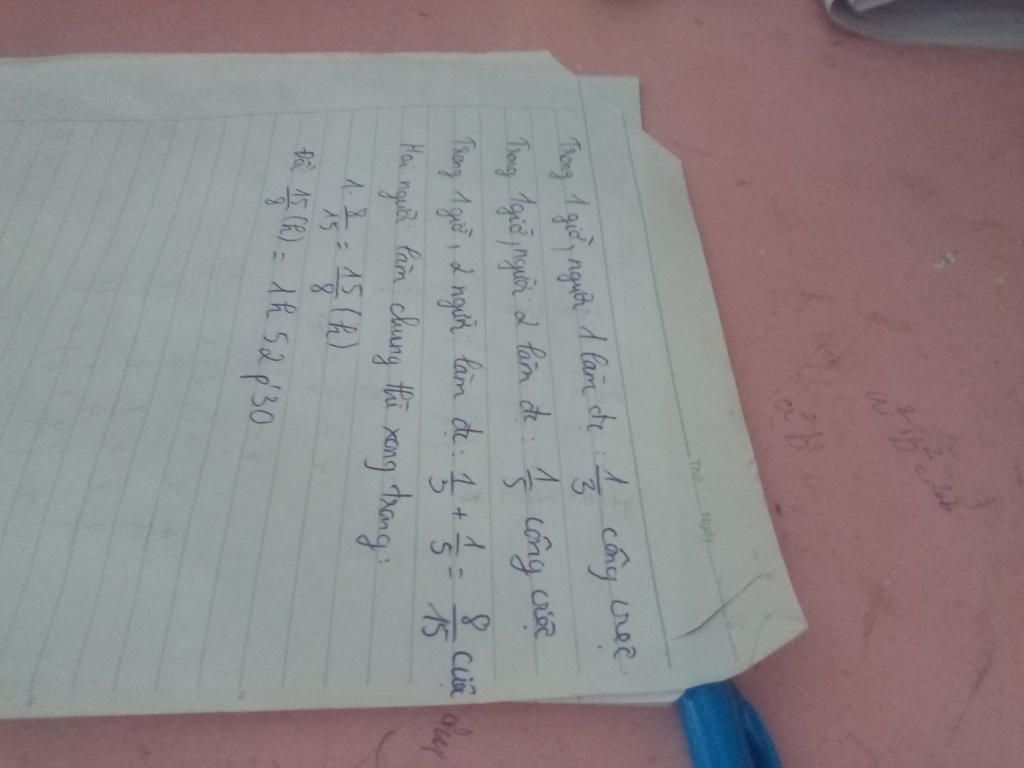 Thứ ...... Ngày ......
Trong 1 giờ, người 1 làm đc : 1/3 công việc
Trong 1 giờ, người 2 làm đc : 1/5 công việc
Trong 1 giờ, 2 người làm đc : 1/3 + 1/5 = 8/15 công việc
Hai người làm chung thì xong trong :
1 : 8/15 = 15/8 (h)
Đổi 15/8 (h) = 1h 52 p' 30